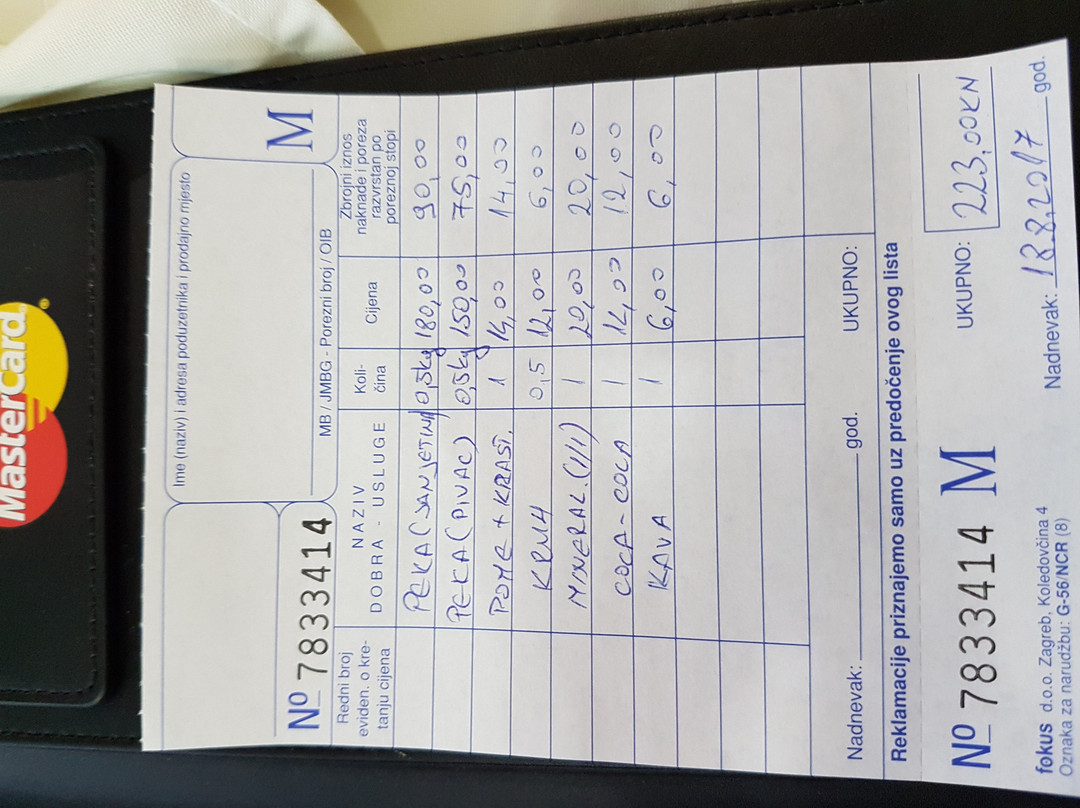 MasterCard
Ime (naziv) i adresa poduzetnika i prodajno mjesto
Nº 7833414
MB / JMBG - Porezni broj / OIB
M
Redni broj eviden. o kretanju cijena
NAZIV DOBRA - USLUGE
Koli-čina
Cijena
Zbrojni iznos naknade i poreza razvrstan po poreznoj stopi
PEKA (JANJETINA) 0,5kg 180,00 90,00
PEKA (PIVAC) 0,5kg 150,00 75,00
POME + KRAST. 1 14,00 14,00
KRUH 0,5 12,00 6,00
MINERAL. (1/1) 1 20,00 20,00
COCA-COCA 1 12,00
KAVA 1 6,00 6,00
Nadnevak: god. UKUPNO:
Reklamacije priznajemo samo uz predočenje ovog lista
Nº 7833414 M UKUPNO: 223,00KN
fokus d.o.o. Zagreb, Koledovčina 4
Oznaka za narudžbu: G-56/NCR (8)
Nadnevak: 18.8.2017 god.